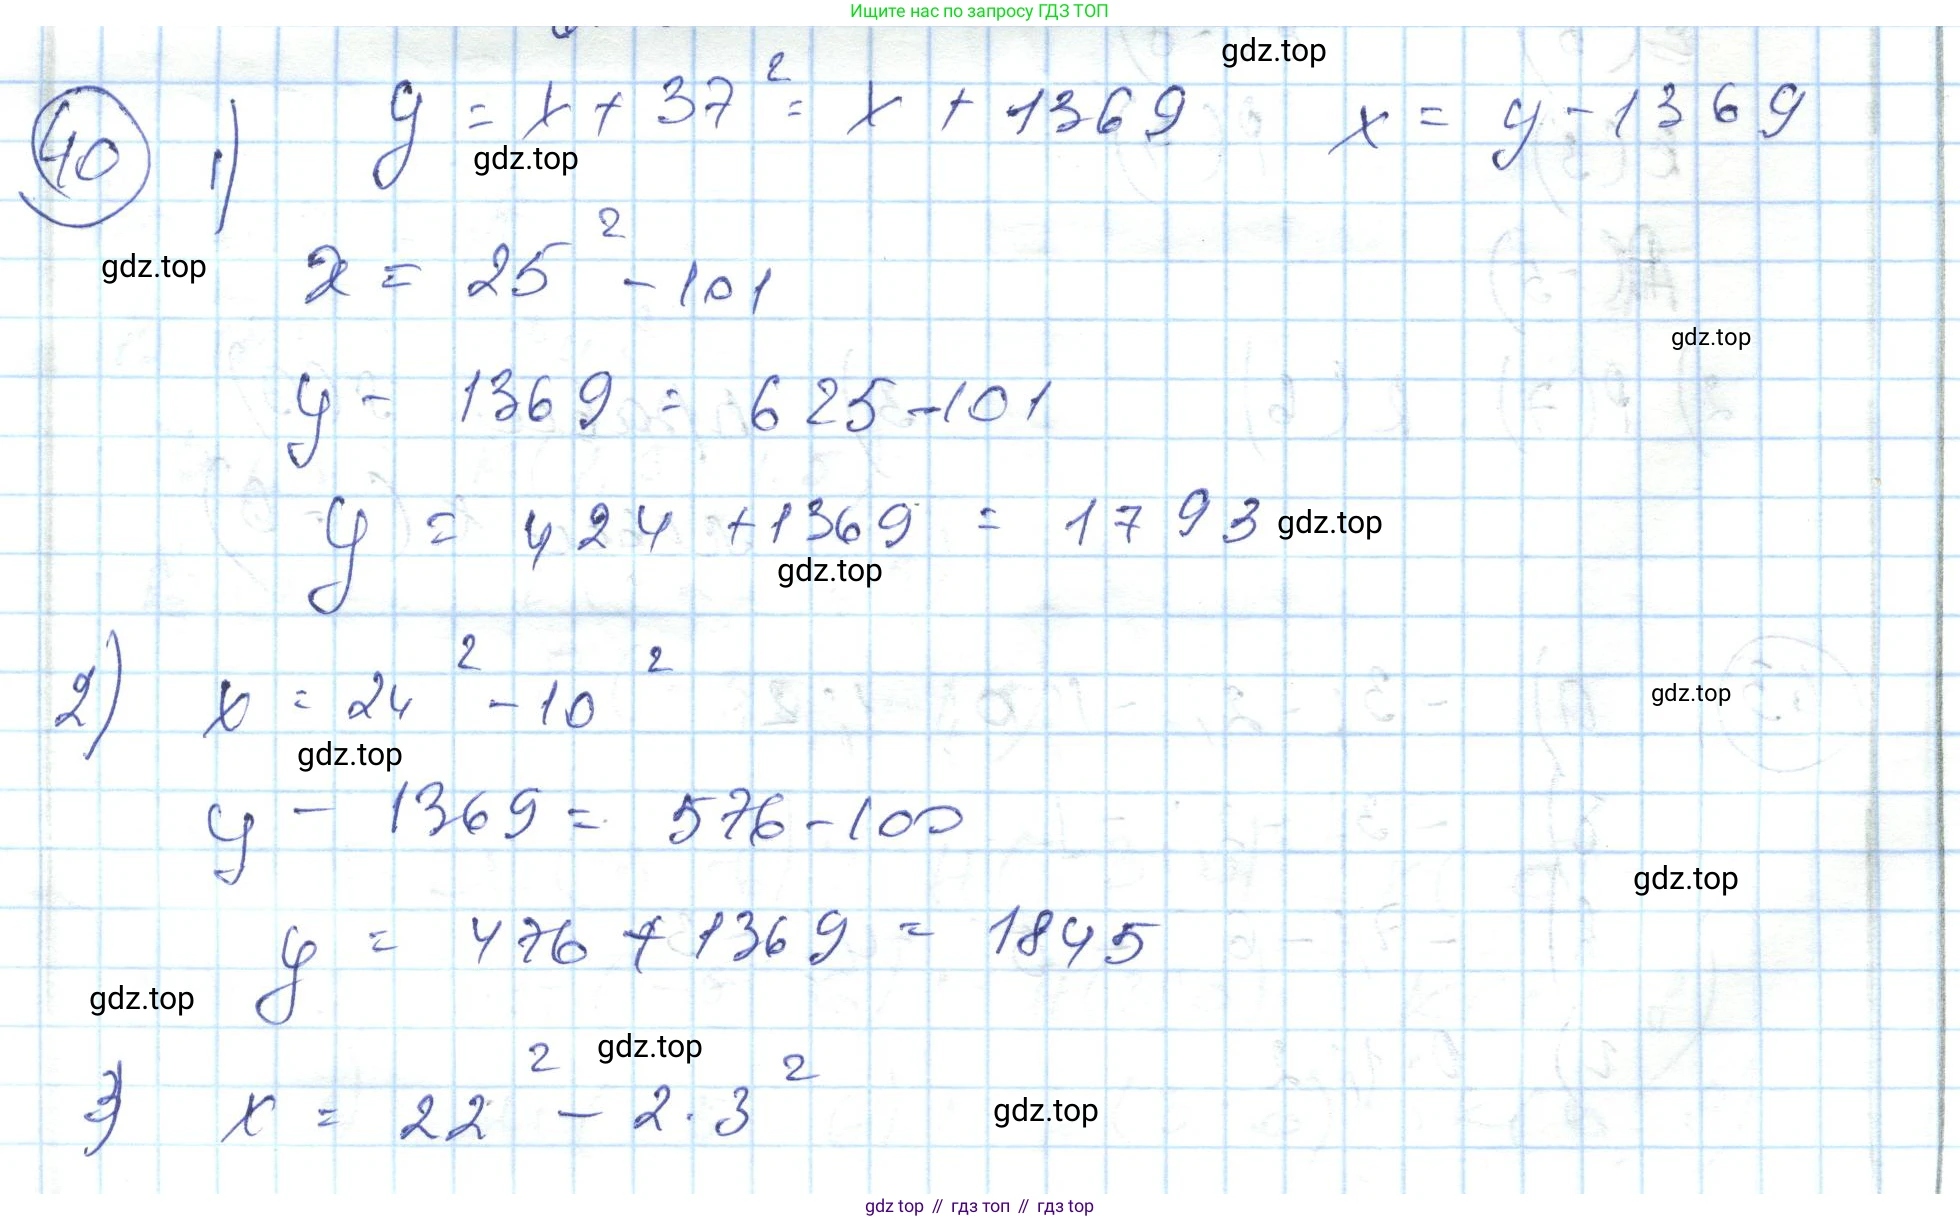 Ищите нас по запросу ГДЗ ТОП
gdz.top
40 1) y = x + 37² = x + 1369 x = y - 1369
gdz.top
x = 25² - 101
gdz.top
gdz.top
y - 1369 = 625 - 101
y = 424 + 1369 = 1793 gdz.top
gdz.top
2) x = 24² - 10²
gdz.top
gdz.top
y - 1369 = 576 - 100
gdz.top
y = 476 + 1369 = 1845
gdz.top
gdz.top
3) x = 22² - 2·3²
gdz.top
gdz top // гдз топ // гдз top